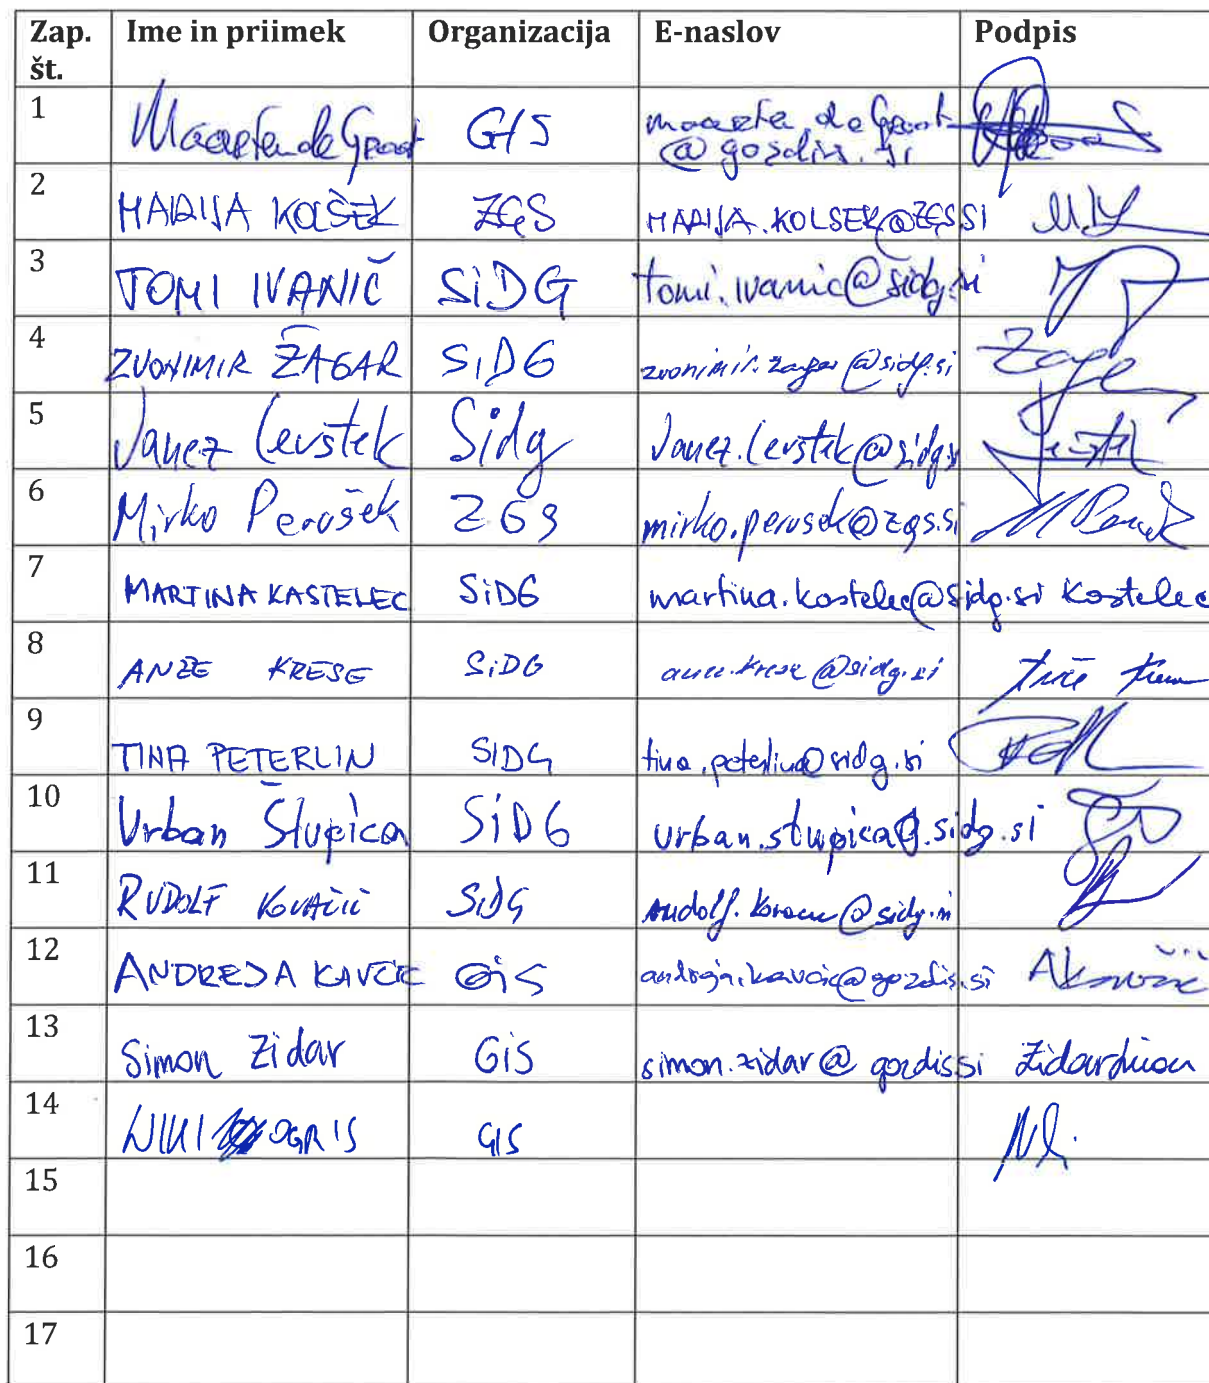 Zap. št. Ime in priimek Organizacija E-naslov Podpis
1 Maarten de Groot GIS maarten.de Groot
@ gozdis.si
2 MARIJA KOLŠEK ZGS MARIJA.KOLSEK@ZGS.SI
3 TOMI IVANIČ SiDG tomi.ivanic@sidg.si
4 ZVONIMIR ŽAGAR SiDG zvonimir.zagar@sidg.si
5 Janez Levstek Sidg Janez.levstek@sidg.si
6 Mirko Perušek ZGS mirko.perusek@zgs.si
7 MARTINA KASTELEC SiDG martina.kastelec@sidg.si Kastelec
8 ANŽE KRESE SiDG anze.krese@sidg.si
9 TINA PETERLIN SIDG tina.peterlin@sidg.si
10 Urban Štupica SiDG urban.stupica@sidg.si
11 RUDOLF KOVAČIČ SiDG rudolf.kovacic@sidg.si
12 ANDREJA KAVČIČ GIS andreja.kavcic@gozdis.si AKavčič
13 Simon Zidar GIS simon.zidar@gozdis.si Zidar Simon
14 NIKI OGRIS GIS
15
16
17